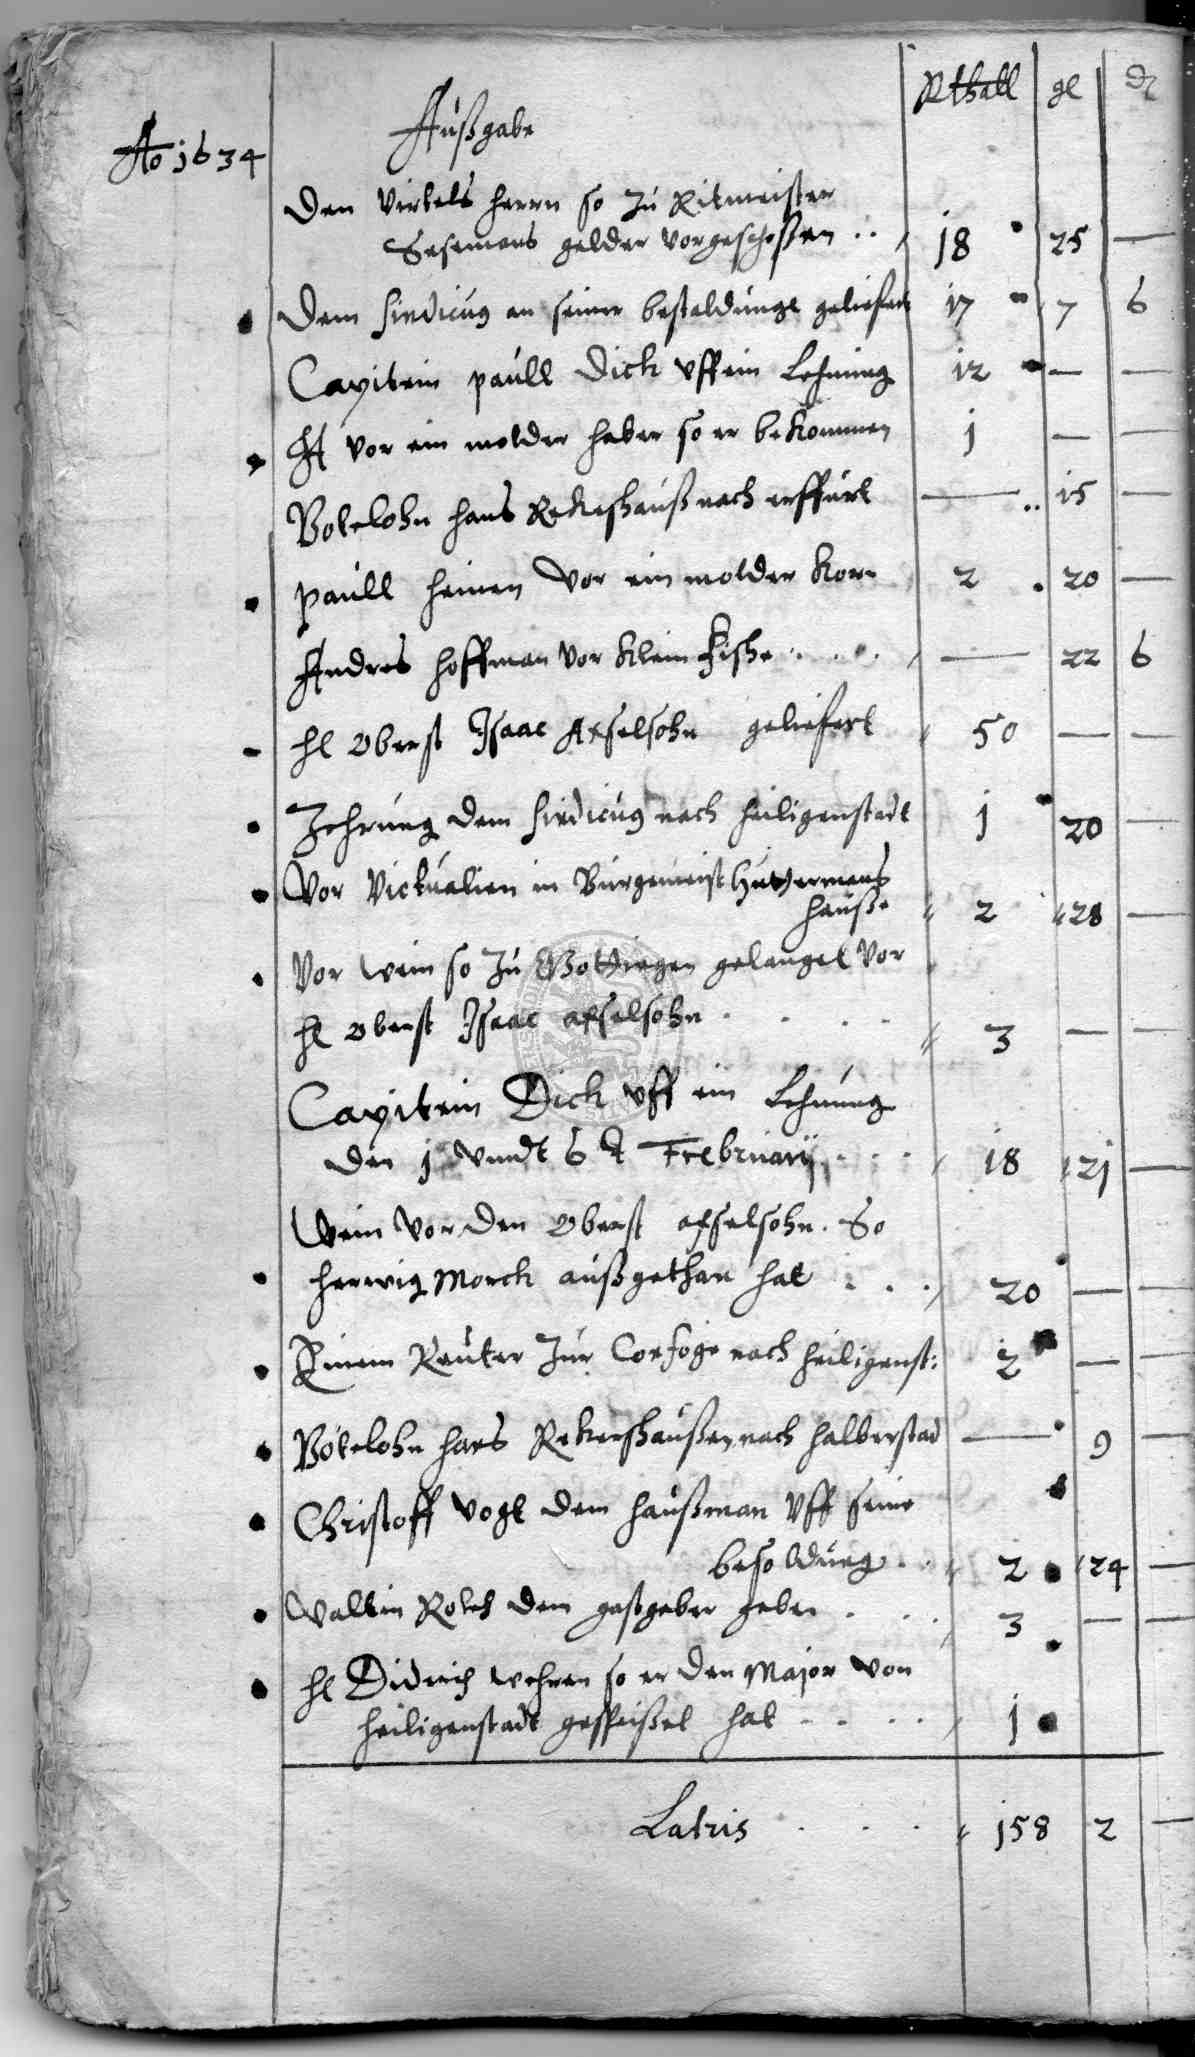 Rthall gl d
Außgabe
Ao 1634
Den Virtels herrn so zu Ritmeister
Sesemans gelder vorgeschoßen .. 18 25 —
Dem Sindicus an seiner bestaldunge geliefert 17 7 6
Capitein paull Dick vff ein Lehnung 12 — —
vor ein molder haber so er bekommen 1 — —
Botelohn hans Rekeshauß nach erffurt — 15 —
paull heinen vor ein molder Korn 2 20 —
Andres hoffman vor klein fishe . . . — 22 6
hl Oberst Isaac Axselsohn geliefert 50 — —
Zehrung dem Sindicus nach heiligenstadt 1 20 —
Vor Victualien in Burgemeist Hutzermans
hauße 2 28 —
Vor wein so zu Gottingen gelanget vor
hl Oberst Isaac axselsohn . . . . 3 — —
Capitein Dick vff ein Lehnung
den 1 vndt 6 t Februarij . . . 18 21 —
Wein vor den Oberst axselsohn. So
herwig Morck außgethan hat . . . 20 — —
Einem Reuter zur Confoge nach heiligenst: 2 — —
Botelohn hans Rekershaußen nach halberstad — 9 —
Christoff Vogt dem haußman vff seine
besoldung . . 2 24 —
Valtin Roteh dem gastgeber geben . . . 3 — —
hl Didrich wehren so er den Major von
heiligenstadt gespeißet hat . . . . 1
Latris . . . 158 2 —